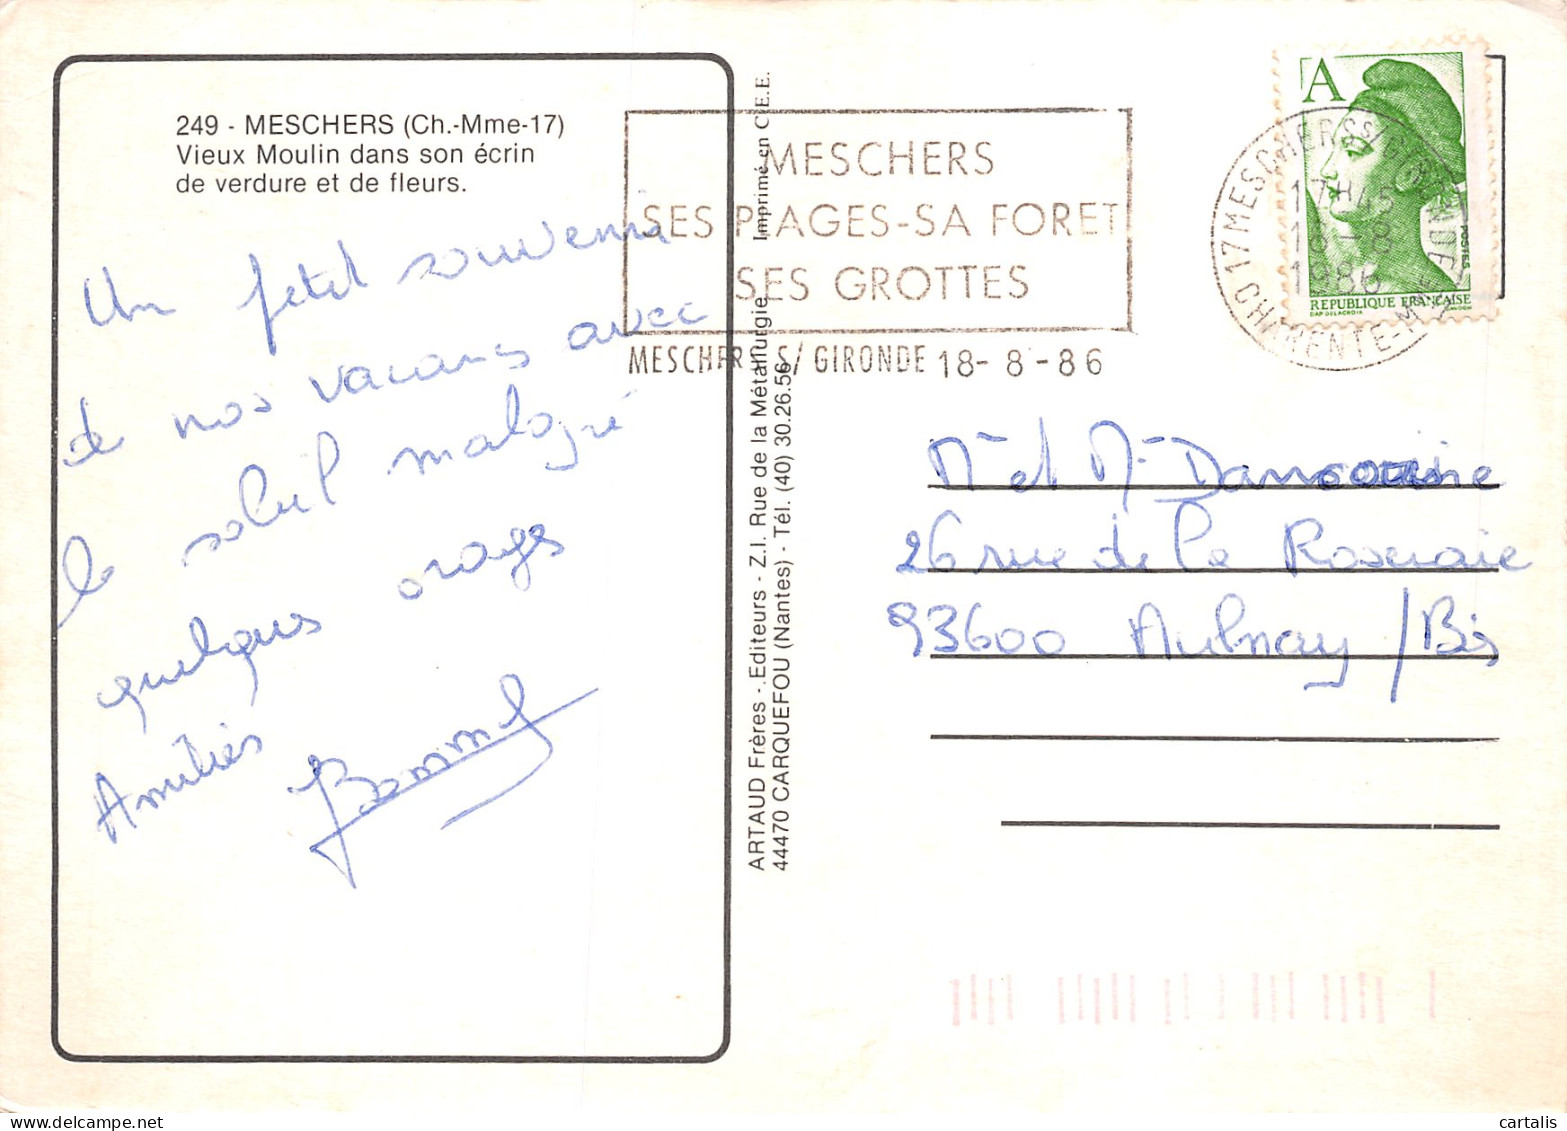 249 - MESCHERS (Ch.-Mme-17)
Vieux Moulin dans son écrin
de verdure et de fleurs.
Un petit souvenir
de nos vacances avec
le soleil malgré
quelques orages
Amitiés
ARTAUD Frères - Editeurs - Z.I. Rue de la Métallurgie Imprimé en C.E.E.
44470 CARQUEFOU (Nantes) - Tél. (40) 30.26.56
MESCHERS
SES PLAGES-SA FORET
SES GROTTES
MESCHERS S/ GIRONDE 18-8-86
17 MESCHERS S/GIRONDE
17H45
18-8
1986
CHARENTE-MME
A
POSTES
REPUBLIQUE FRANÇAISE
DAP DELACROIX GANDON
Mr et Mme
26 rue de la Roseraie
93600 Aulnay /Bis
cartalis